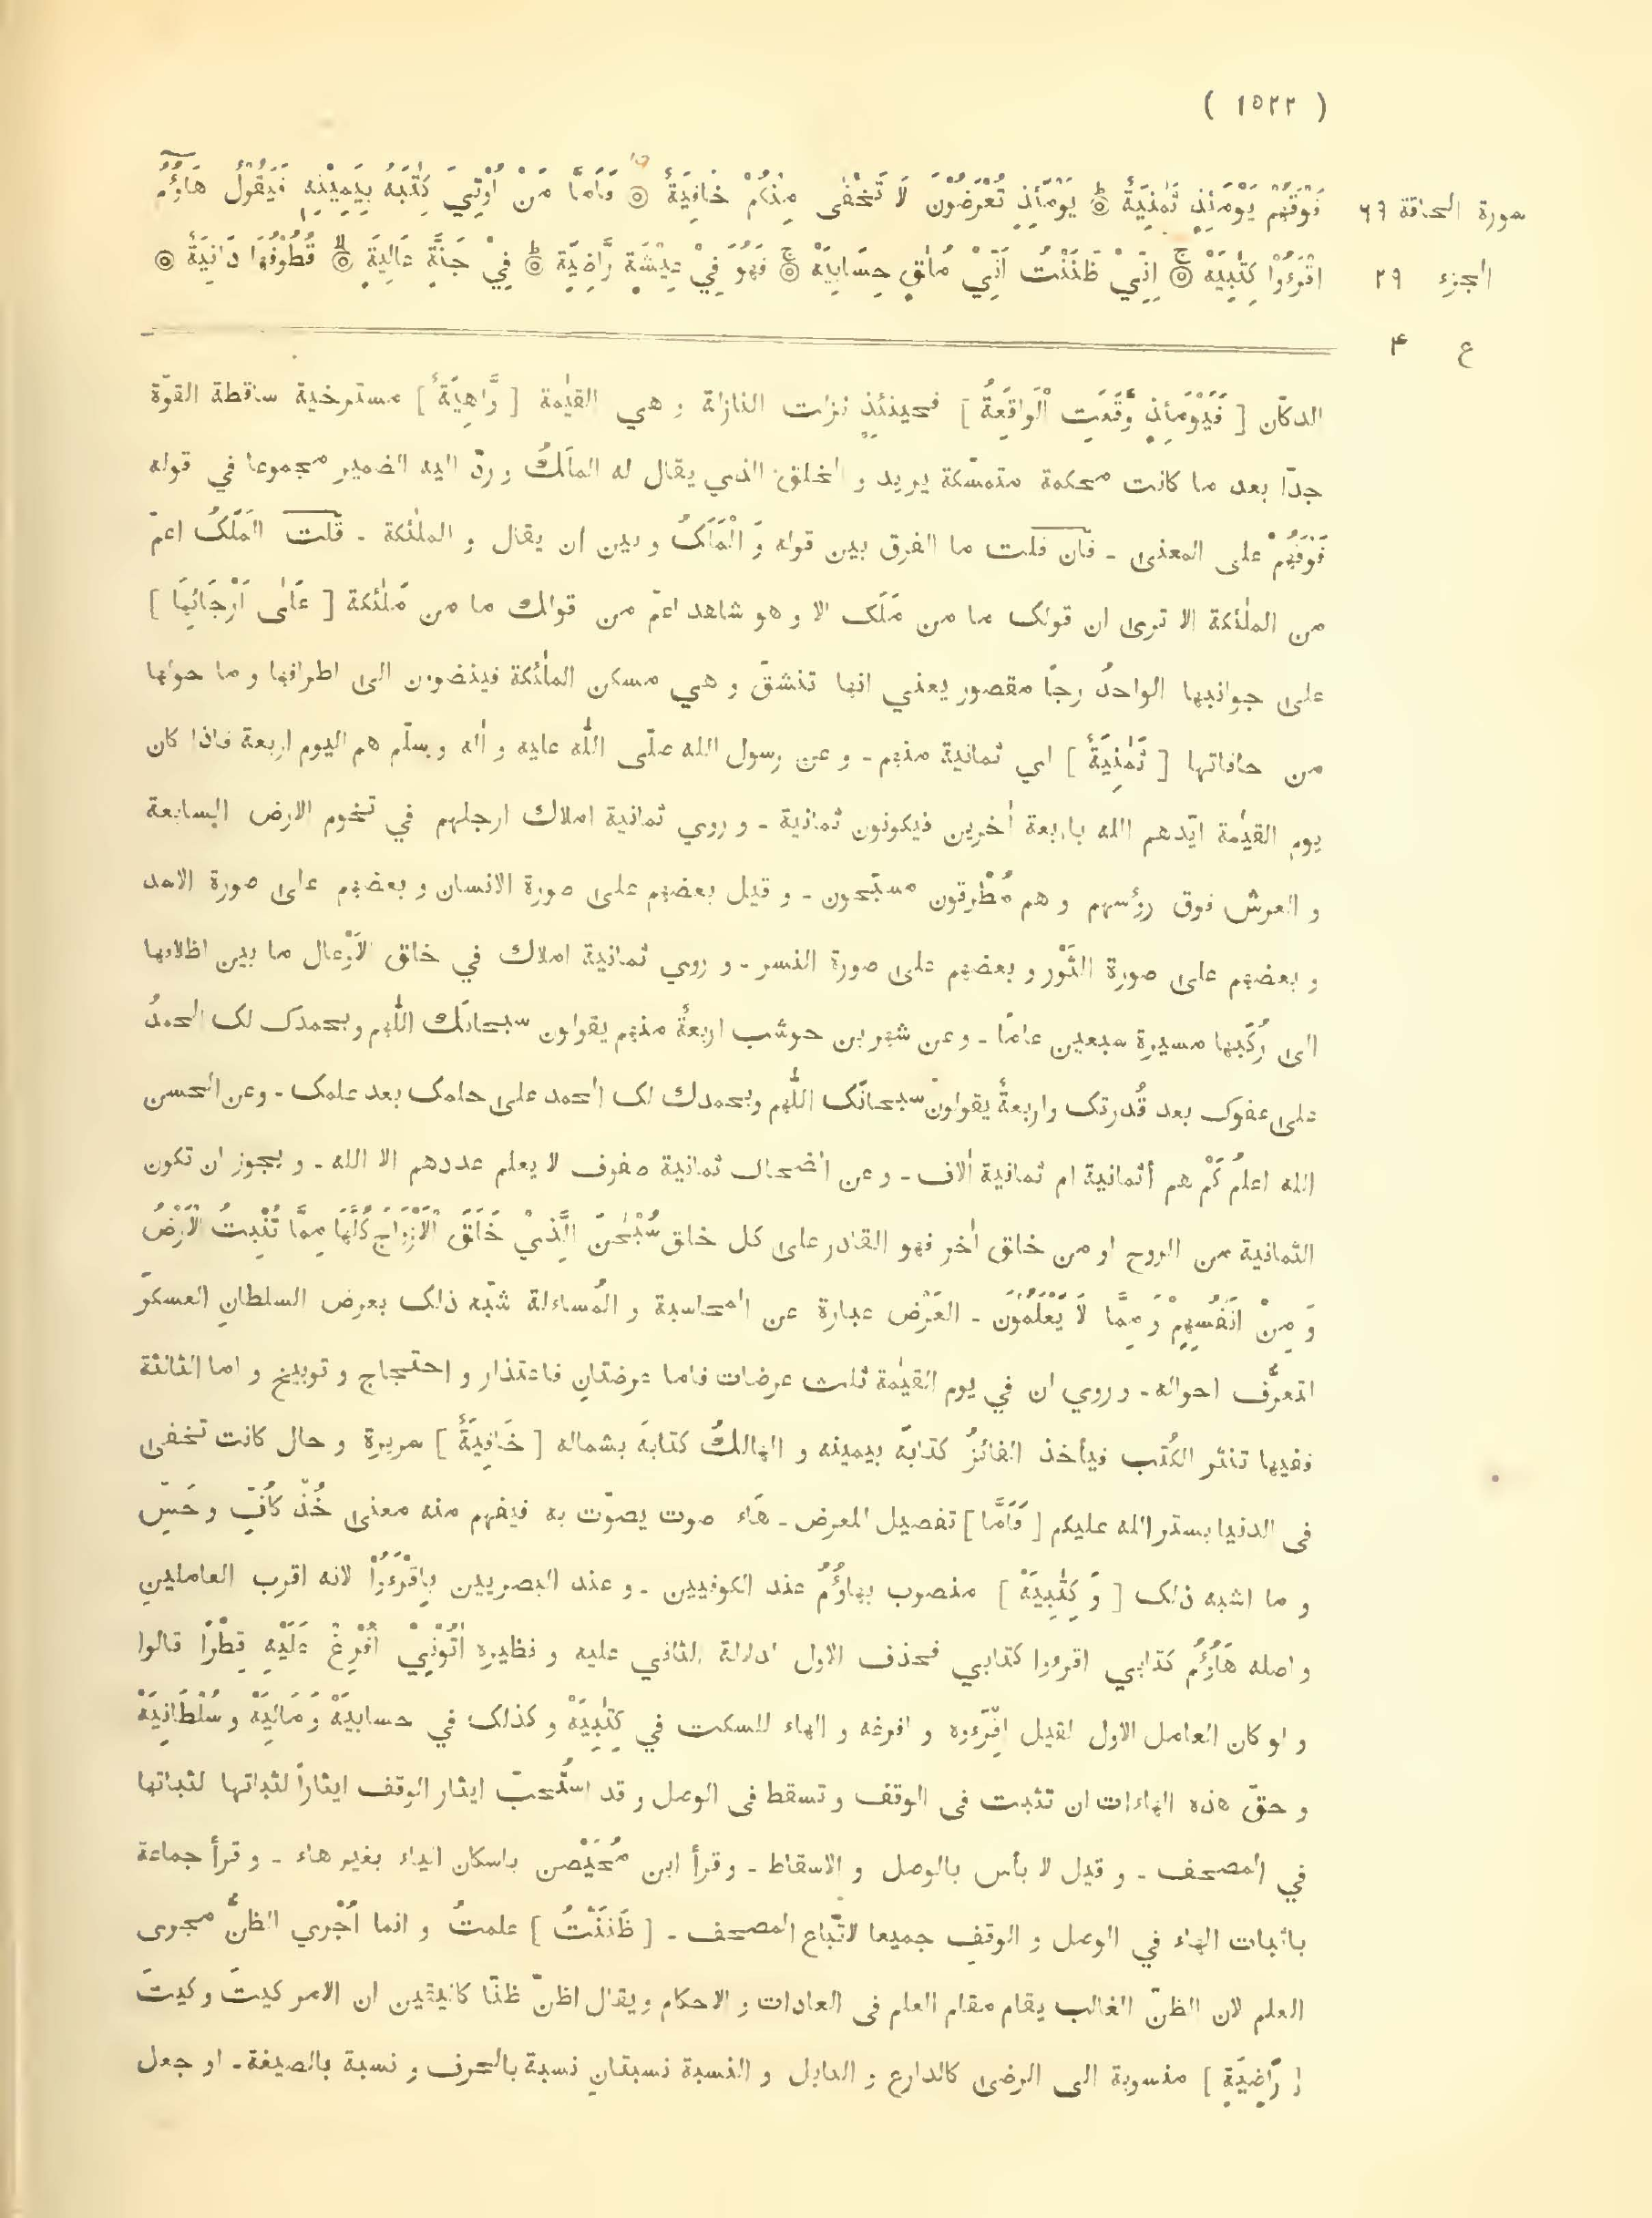 ( ١٥٢٢ )
سورة الحاقة ٦٩
الجزء ٢٩
ع ۴
فَوْقَهُمْ يَوْمَئِذٍ ثَمٰنِيَةٌ ۞ يَوْمَئِذٍ تُعْرَضُوْنَ لَا تَخْفٰى مِنْكُمْ خَافِيَةٌ ۞ فَاَمَّا مَنْ اُوْتِيَ كِتٰبَهُ بِيَمِيْنِهٖ فَيَقُوْلُ هَاؤُمُ
اقْرَءُوْا كِتٰبِيَهْ ۞ اِنِّيْ ظَنَنْتُ اَنِّيْ مُلٰقٍ حِسَابِيَهْ ۞ فَهُوَ فِيْ عِيْشَةٍ رَّاضِيَةٍ ۞ فِيْ جَنَّةٍ عَالِيَةٍ ۞ قُطُوْفُهَا دَانِيَةٌ ۞
الدكّان [ فَيَوْمَئِذٍ وَّقَعَتِ الْوَاقِعَةُ ] فحينئذٍ نزلت النازلة و هي القيٰمة [ وَّاهِيَةٌ ] مسترخية ساقطة القوّة
جدّا بعد ما كانت محكمة متمسّكة يريد و الخلق الذي يقال له المَلَكُ و ردّ اليه الضمير مجموعا في قوله
فَوْقَهُمْ على المعنى - فان قلت ما الفرق بين قوله وَ الْمَلَكُ و بين ان يقال و الملٰئكة - قلت المَلَكُ اعمّ
من الملٰئكة الا ترى ان قولك ما من مَلَك الا و هو شاهد اعمّ من قولك ما من مَلٰئكة [ عَلٰى اَرْجَائِهَا ]
على جوانبها الواحدُ رجًا مقصور يعني انها تنشقّ و هي مسكن الملٰئكة فينضوون الى اطرافها و ما حولها
من حافاتها [ ثَمٰنِيَةٌ ] اي ثمانية منهم - و عن رسول الله صلّى اللّٰه عليه و اٰله و سلّم هم اليوم اربعة فاذا كان
يوم القيٰمة ايّدهم الله باربعة اٰخرين فيكونون ثمانية - و روي ثمانية املاك ارجلهم في تخوم الارض السابعة
و العرش فوق رؤسهم و هم مُطْرِقون مسبّحون - و قيل بعضهم على صورة الانسان و بعضهم على صورة الاسد
و بعضهم على صورة الثَوْر و بعضهم على صورة النسر - و روي ثمانية املاك في خلق الاَوْعال ما بين اظلافها
الى رُكَبها مسيرة سبعين عامًا - و عن شهر بن حوشب اربعةٌ منهم يقولون سبحانك اللّٰهم و بحمدك لك الحمدُ
على عفوك بعد قُدرتك و اربعةٌ يقولون سبحانَك اللّٰهم و بحمدك لك الحمد على حلمك بعد علمك - و عن الحسن
الله اعلمُ كَمْ هم أثمانية ام ثمانية اٰلاف - و عن الضحاك ثمانية صفوف لا يعلم عددهم الا الله - و يجوز ان تكون
الثمانية من الروح او من خلق اٰخر فهو القادر على كل خلق سُبْحٰنَ الَّذِيْ خَلَقَ الْاَزْوَاجَ كُلَّهَا مِمَّا تُنْبِتُ الْاَرْضُ
وَ مِنْ اَنْفُسِهِمْ وَ مِمَّا لَا يَعْلَمُوْنَ - العَرْض عبارة عن المحاسبة و المُساءلة شبّه ذلك بعرض السلطانِ العسكرَ
لتعرُّف احواله - و روي ان في يوم القيٰمة ثلث عرضات فاما عرضتانِ فاعتذار و احتجاج و توبيخ و اما الثالثة
ففيها تنثر الكُتب فيأخذ الفائزُ كتابَه بيمينه و الهالكُ كتابَه بشماله [ خَافِيَةٌ ] سريرة و حال كانت تخفى
فى الدنيا بستر الله عليكم [ فَاَمَّا ] تفصيل للعرض - هَاء صوت يصوّت به فيفهم منه معنى خُذْ كاُفٍّ و حَسِّ
و ما اشبه ذلك [ وَ كِتٰبِيَهْ ] منصوب بهاؤُمُ عند الكوفيين - و عند البصريين بِاقْرَءُوْا لانه اقرب العاملين
و اصله هَاؤُمُ كتابي اقرءوا كتابي فحذف الاول لدلالة الثاني عليه و نظيره اٰتُوْنِيْ اُفْرِغْ عَلَيْهِ قِطْرًا قالوا
و لو كان العامل الاول لقيل اقْرَءوه و افرغه و الهاء للسكت في كِتٰبِيَهْ و كذلك في حسابيَهْ وَ مَالِيَهْ و سُلْطَانِيَهْ
و حقّ هذه الهاءات ان تثبت فى الوقف و تسقط فى الوصل و قد استُحبّ ايثار الوقف ايثاراً لثباتها لثباتها
في المصحف - و قيل لا بأس بالوصل و الاسقاط - و قرأ ابن مُحَيْصن باسكان الياء بغير هاء - و قرأ جماعة
باثبات الهاء في الوصل و الوقف جميعا لاتّباع المصحف - [ ظَنَنْتُ ] علمتُ و انما اُجْري الظنُّ مجرى
العلم لان الظنّ الغالب يقام مقام العلم فى العادات و الاحكام و يقال اظنّ ظنّا كاليقين ان الامر كيتَ و كيتَ
[ رَّاضِيَةٍ ] منسوبة الى الرضى كالدارع و النابل و النسبة نسبتانِ نسبة بالحرف و نسبة بالصيغة - او جعل